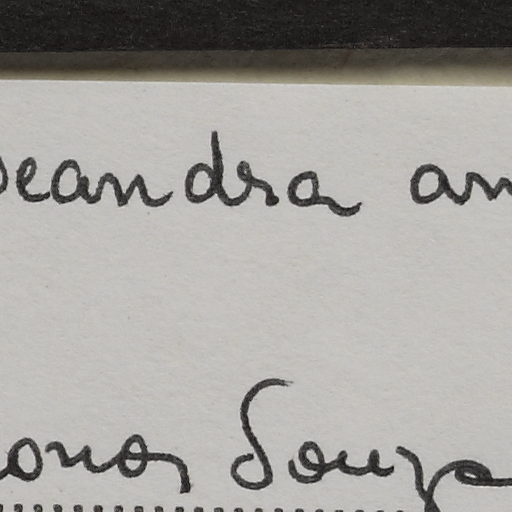 Deandra an
ona Souza